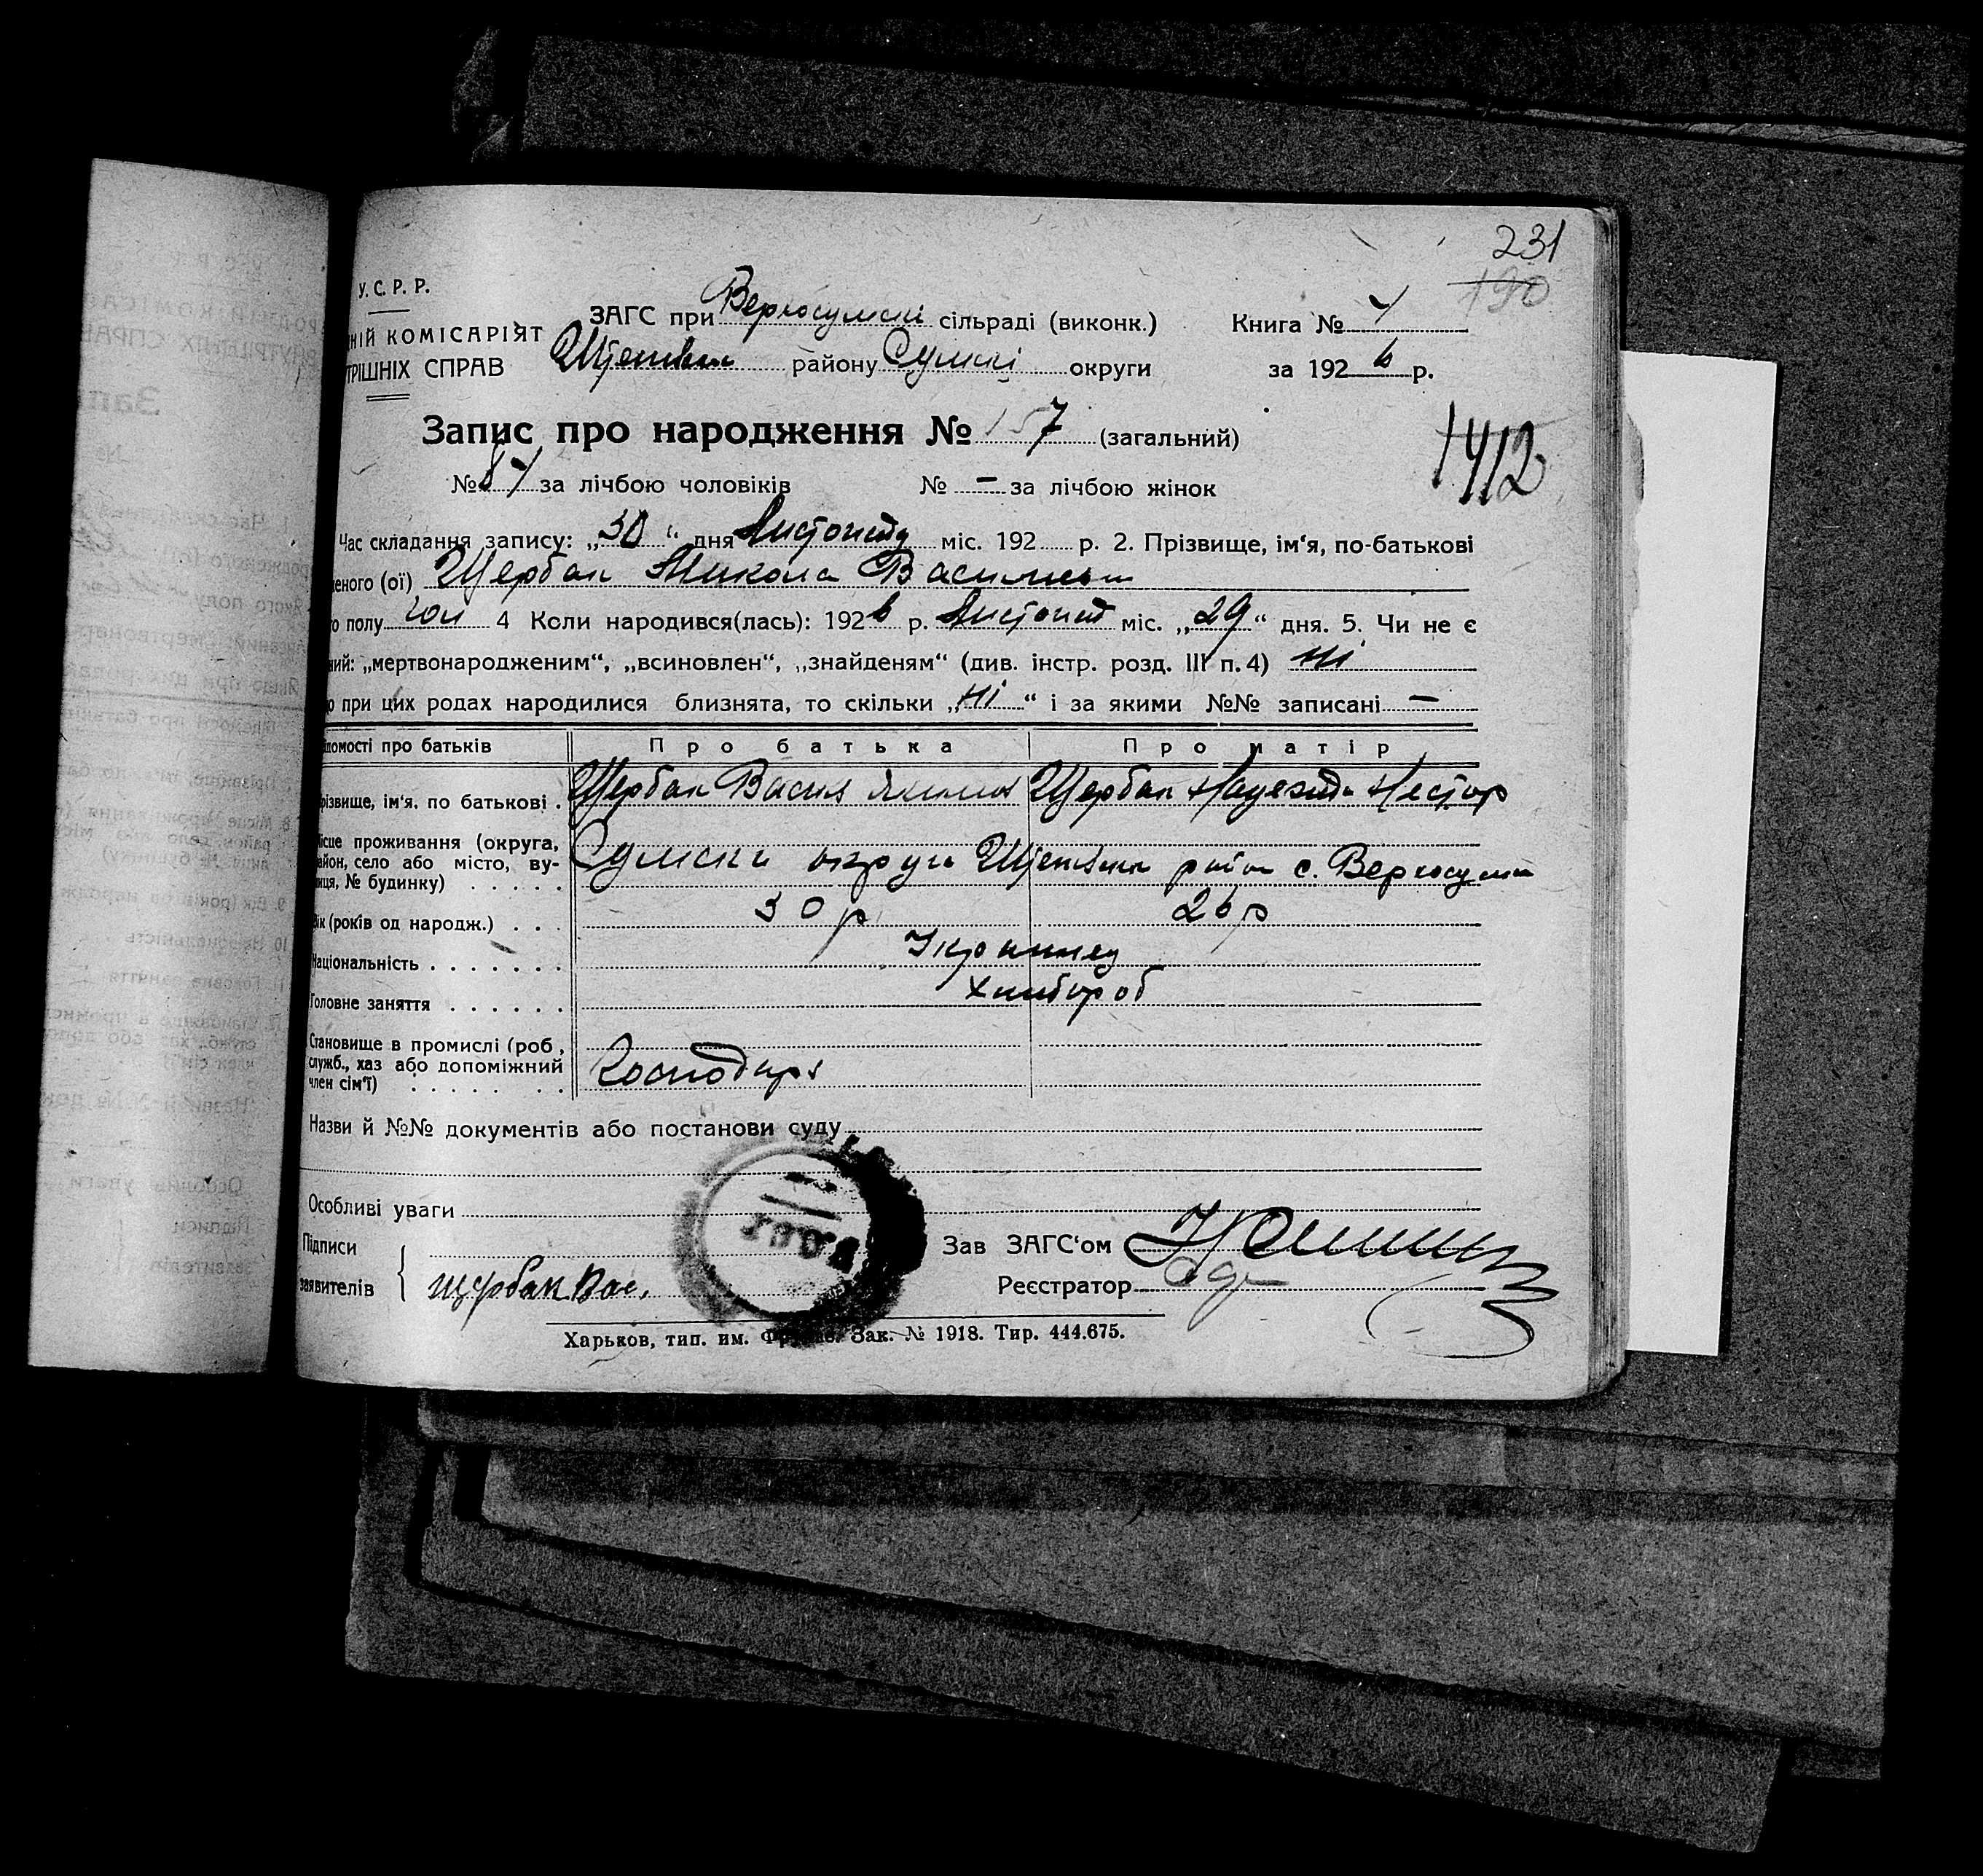 231
190
У.С.Р.Р.
ЗАГС при Верхосумскі сільраді (виконк.) Книга №
НІЙ КОМІСАРІЯТ
ТРІШНІХ СПРАВ району Сумскі округи за 192 6 р.
Запис про народження № 157 (загальний)
1412
№ за лічбою чоловіків № - за лічбою жінок
Час складання запису: „30“ дня Листопада міс. 192 р. 2. Прізвище, ім'я, по-батькові
еного (ої) Щербак Микола Васильев
о полу чол 4 Коли народився(лась): 192 6 р. Листопад міс. „29“ дня. 5. Чи не є
ний: „мертвонародженим“, „всиновлен“, „знайденям“ (див. інстр. розд. III п. 4) ні
о при цих родах народилися близнята, то скільки „ні“ і за якими №№ записані -
домості про батьків Про батька Про матір
різвище, ім'я, по батькові . Щербак Васил Щербак Надежда Нестор
ісце проживання (округа, район, село або місто, ву-
лиця, № будинку) . . . . . Сумска округа район с. Верхосумка
Вік (років од народж.) . . . 30 р 26 р
Національність . . . . . . . Украинец
Головне заняття . . . . . . Хлибороб
Становище в промислі (роб.,
служб., хаз або допоміжний
член сім'ї) . . . . . . . Господарь
Назви й №№ документів або постанови суду
Особливі уваги
Підписи
заявителів { Щурбак Вас.
Зав ЗАГС'ом
Реєстратор
Харьков, тип. им. Зак. № 1918. Тир. 444.675.